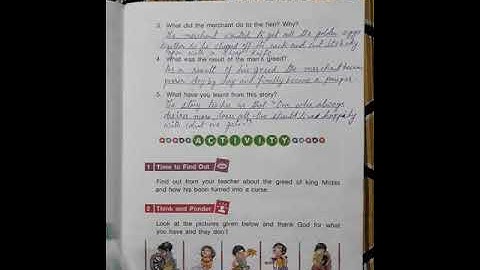 3. What did the merchant do to the hen? Why?
The merchant wanted to get all the golden eggs
together so he chopped off the neck and cut its body
open with a sharp knife.
4. What was the result of the man's greed?
As a result of his greed the merchant became
poorer day by day and finally become a pauper.
5. What have you learnt from this story?
The story teaches us that "One who always
desires more, loses all. We should live happily
with what we get."
ACTIVITY
1 Time to Find Out
Find out from your teacher about the greed of king Midas
and how his boon turned into a curse.
2 Think and Ponder
Look at the pictures given below and thank God for what
you have and they don't?